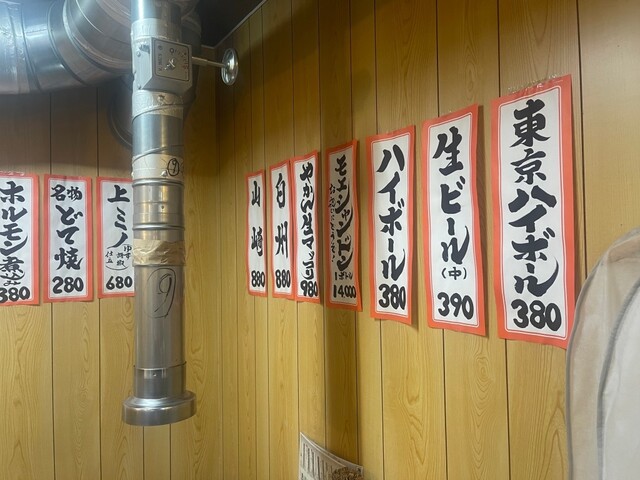 東京ハイボール
380
生ビール
(中)
390
ハイボール
380
モエシャンドン
1ボトル
14,000
やかん生マッコリ
980
白州
880
山崎
880
上ミノ
680
名物
どて焼
280
ホルモン煮込み
380
9
9